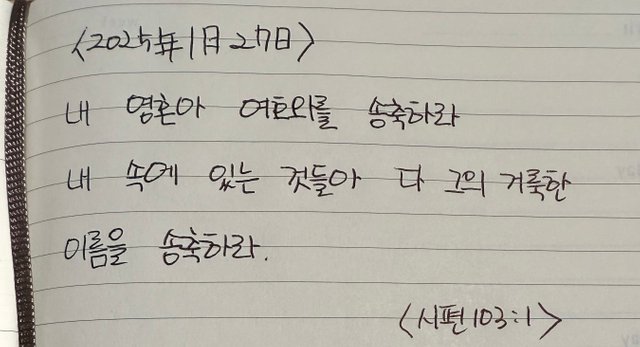 <2025年1日27日>
내 영혼아 여호와를 송축하라
내 속에 있는 것들아 다 그의 거룩한
이름을 송축하라.
<시편103:1>